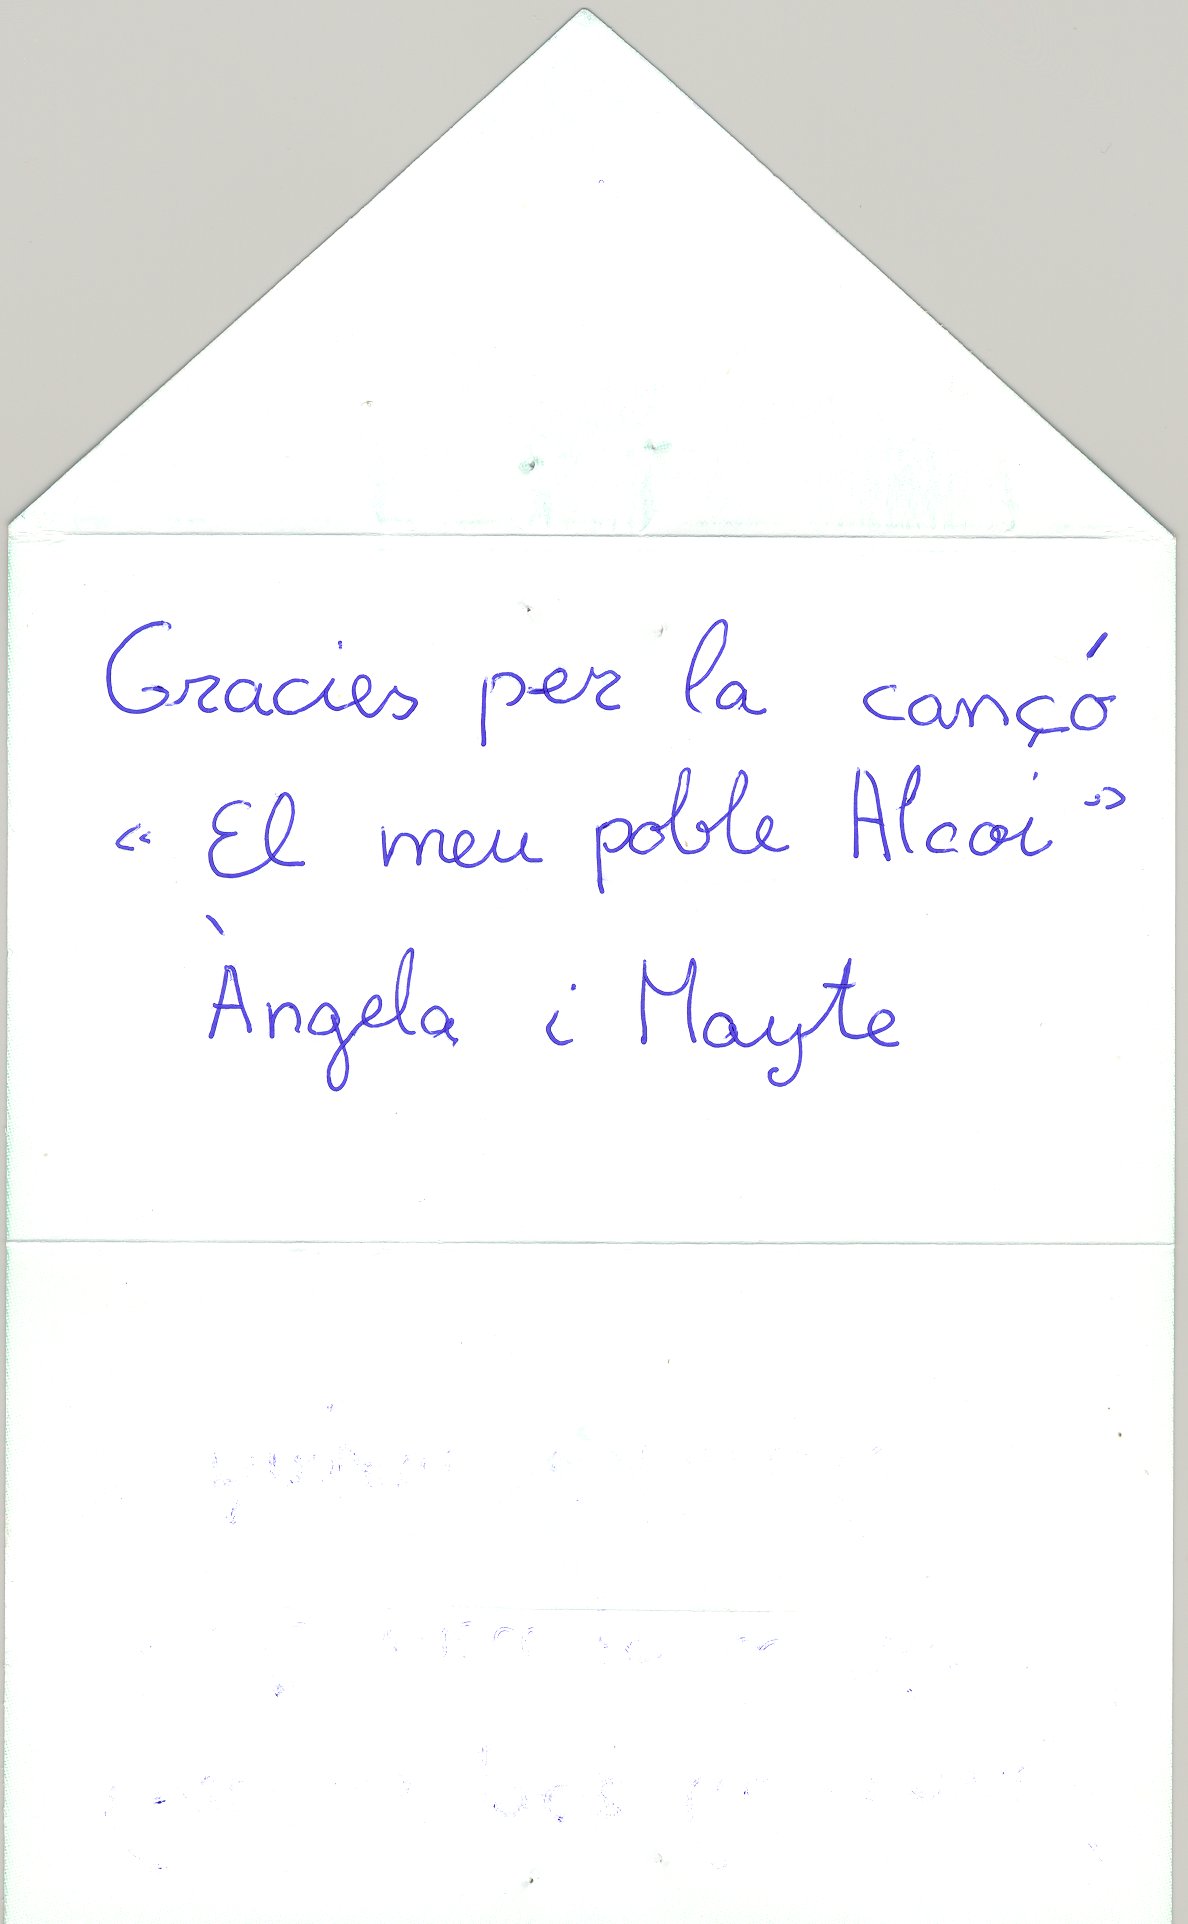 Gracies per la cançó
« El meu poble Alcoi »
Àngela i Mayte